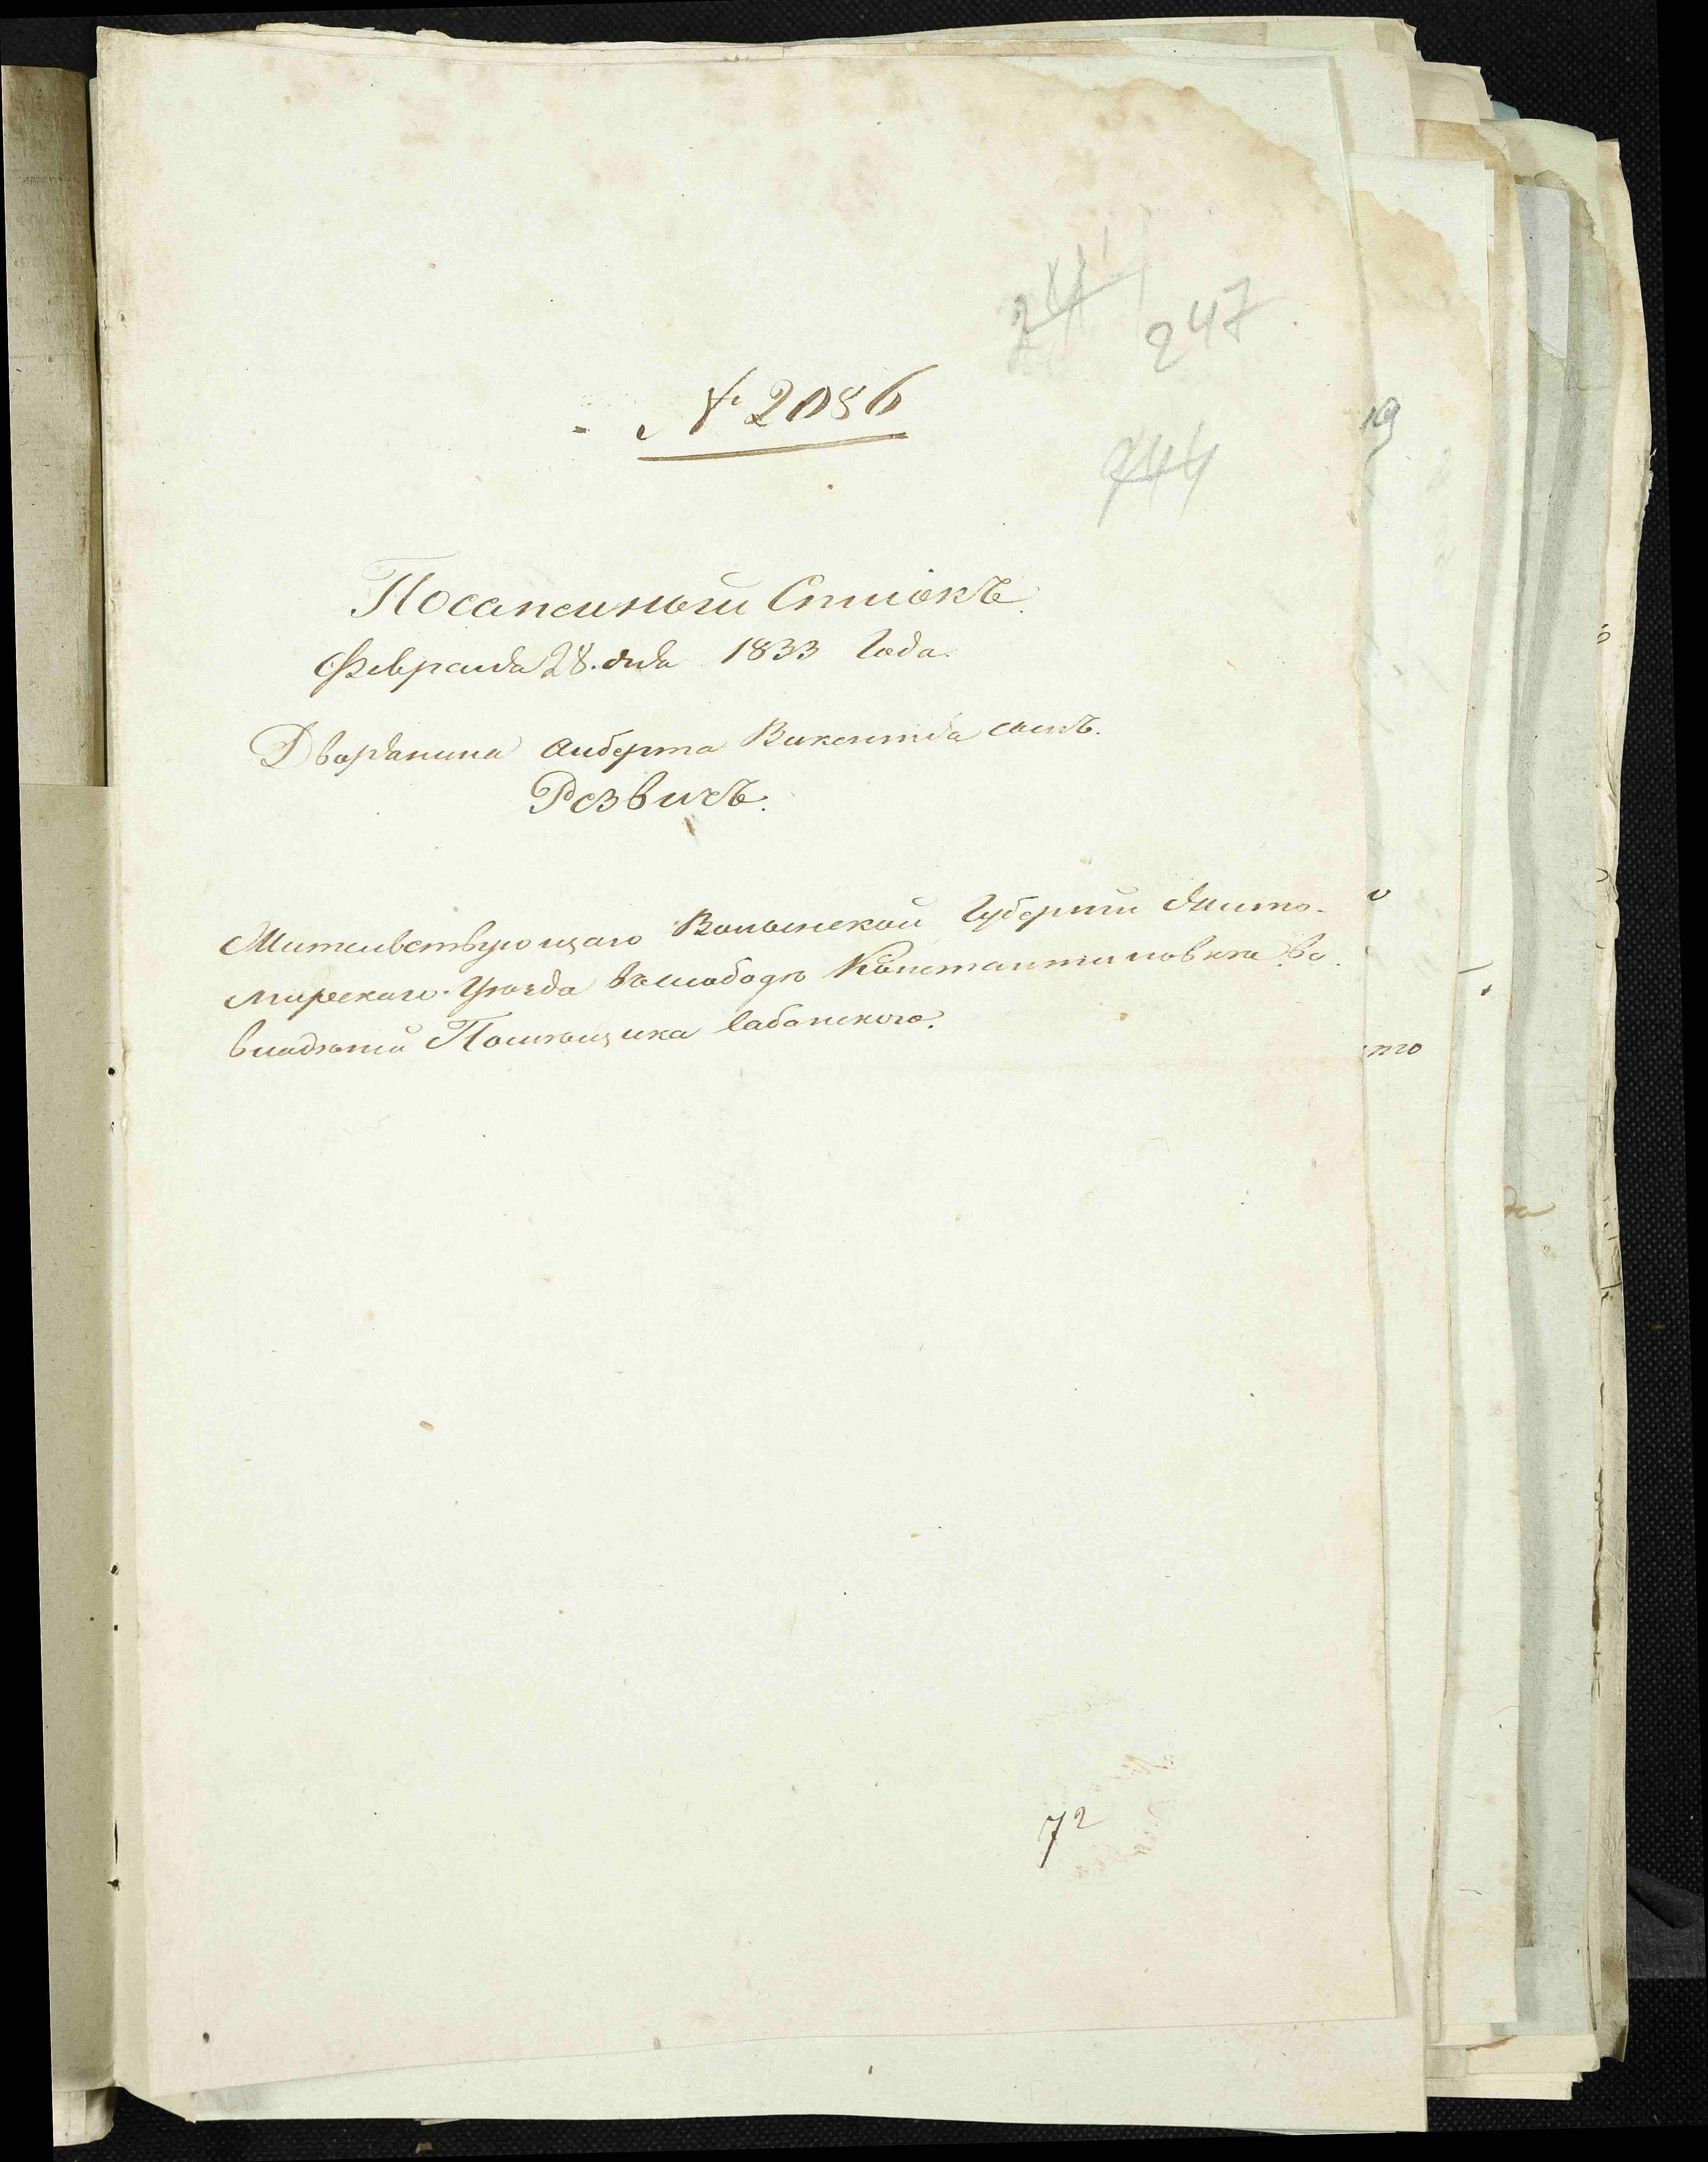 241
247
№ 2086
744
Посапейный Списокъ
Февраля 28. дня 1833 Года.
Дворянина Алберта Викентія сынъ.
Резвичъ.
Жительствующаго Волынской Губерніи Жито-
мирскаго Уѣзда въ слободѣ Константиновка во
владѣніи Помѣщика Сабанского.
72